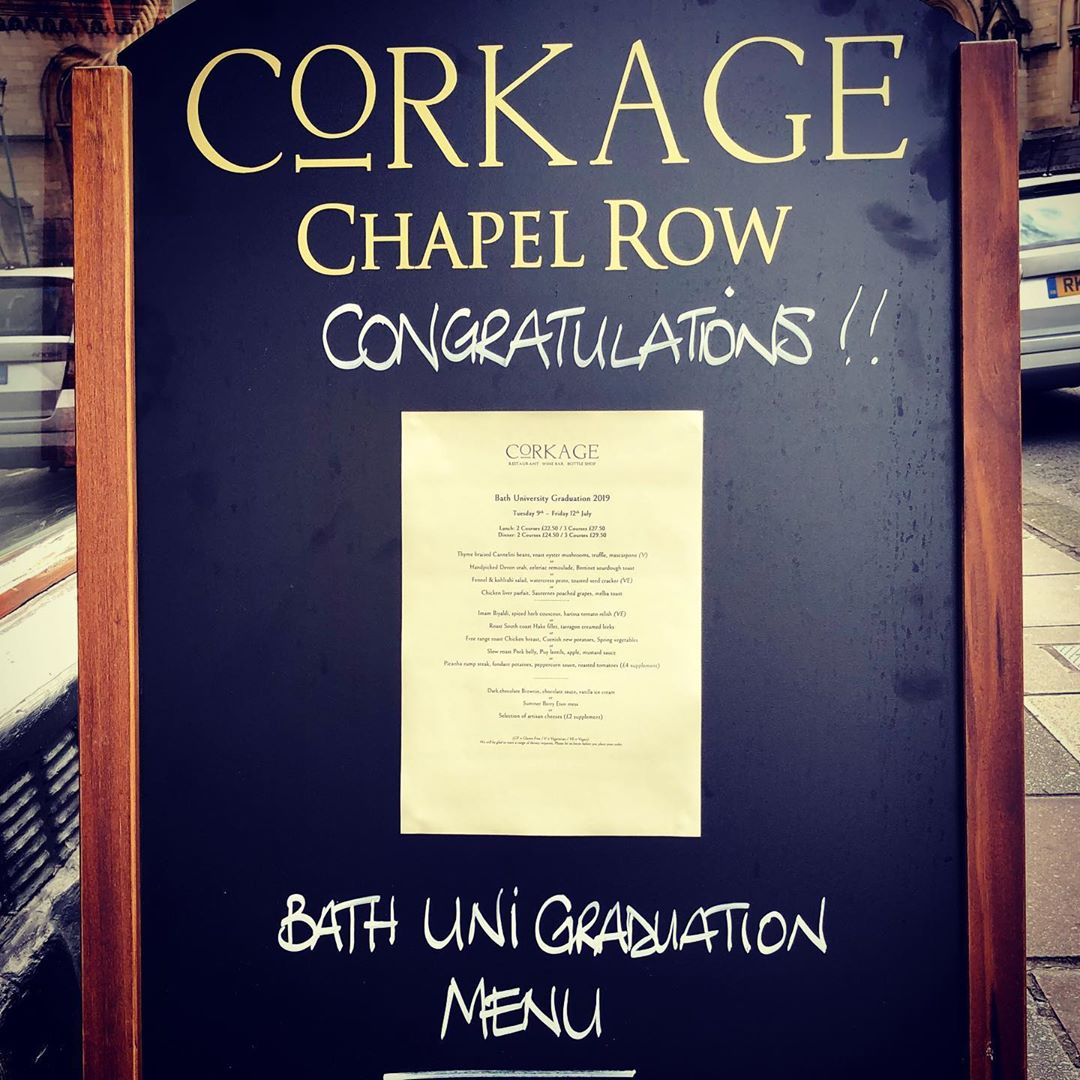 CORKAGE
CHAPEL ROW
CONGRATULATIONS!!
CORKAGE
RESTAURANT WINE BAR BOTTLE SHOP
Bath University Graduation 2019
Tuesday 9th – Friday 12th July
Lunch: 2 Courses £22.50 / 3 Courses £27.50
Dinner: 2 Courses £24.50 / 3 Courses £29.50
Thyme braised Cannelini beans, roast oyster mushrooms, truffle, mascarpone (V)
or
Handpicked Devon crab, celeriac remoulade, Bertinet sourdough toast
or
Fennel & kohlrabi salad, watercress pesto, toasted seed cracker (VE)
or
Chicken liver parfait, Sauternes poached grapes, melba toast
Imam Biyaldi, spiced herb couscous, harissa tomato relish (VE)
or
Roast South coast Hake fillet, tarragon creamed leeks
or
Free range roast Chicken breast, Cornish new potatoes, Spring vegetables
or
Slow roast Pork belly, Puy lentils, apple, mustard sauce
or
Picanha rump steak, fondant potatoes, peppercorn sauce, roasted tomatoes (£4 supplement)
Dark chocolate Brownie, chocolate sauce, vanilla ice cream
or
Summer Berry Eton mess
or
Selection of artisan cheeses (£2 supplement)
(GF = Gluten Free / V = Vegetarian / VE = Vegan)
We will be glad to meet a range of dietary requests. Please let us know before you place your order.
BATH UNI GRADUATION
MENU
RK